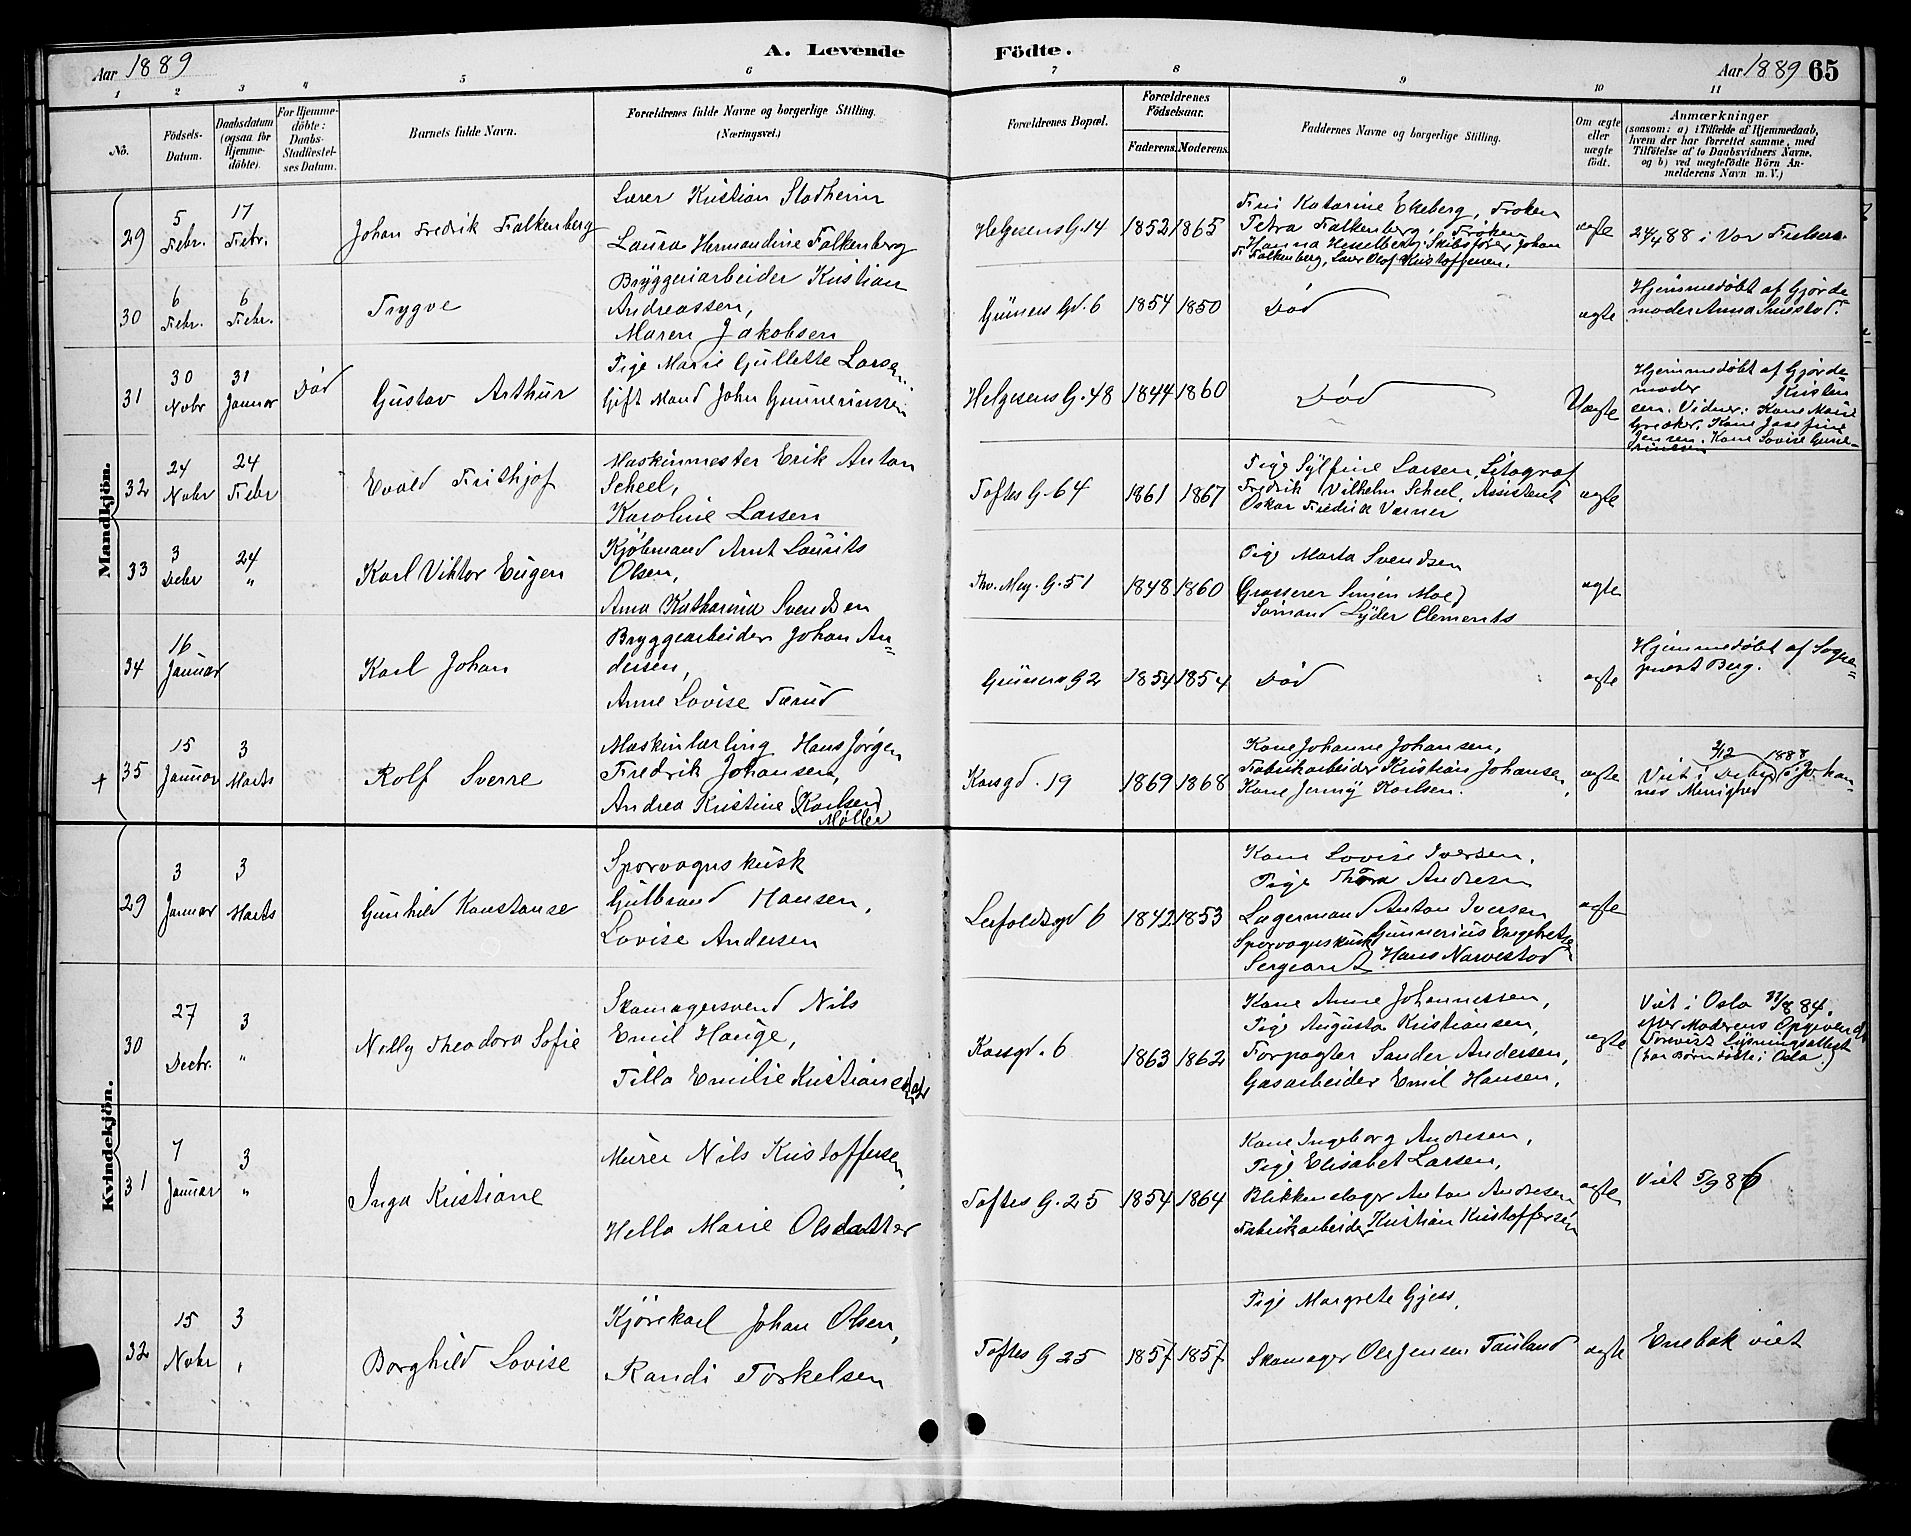 Aar 1889
A. Levende Födte.
Aar 1889 65
1 2 3 4 5 6 7 8 9 10 11
No.
Födsels-Datum.
Daabsdatum (ogsaa for Hjemmedöbte).
For Hjemmedöbte: Daabs-Stadfæstelses Datum.
Barnets fulde Navn.
Forældrenes fulde Navne og borgerlige Stilling.
(Næringsvei.)
Forældrenes Bopæl.
Forældrenes Födselsaar.
Faderens. Moderens.
Faddernes Navne og borgerlige Stilling.
Om ægte eller uægte födt.
Anmærkninger
(saasom: a) i Tilfælde af Hjemmedaab,
hvem der har forrettet samme, med
Tilföielse af to Daabsvidners Navne,
og b) ved uegtefödte Börn An-
melderens Navn m. V.)
Mandkjön.
29
5 Febr.
17 Febr.
Johan Fredrik Falkenberg
Lærer Kristian Stadheim
Laura Hermandine Falkenberg
Helgesens G. 14
1852 1865
Frii Katarine Ekeberg, Frøken
Petra Falkenberg, Frøken
Hanna Hesselberg, Skibsfører Johan
F. Falkenberg, Lærer Olof Kristoffersen.
ægte
24/4 88 i Vor Frelsers.
30
6 Febr.
6 Febr.
Trygve
Bryggeriarbeider Kristian
Andreassen,
Maren Jakobsen
Grüners Gd. 6
1854 1850
Død
ægte
Hjemmedøbt af Gjorde
moder Anna
31
30 Nobr
31 Januar
Død
Gustav Arthur
Pige Marie Gullette Larsen.
Gift Mand John Gunneriussen
Helgesens G. 48
1844 1860
Død
Uægte
Hjemmedøbt af Gjorde
moder Kristen
sen. Vidner: Kone Marie
Kone Josefine
Jensen. Kone Lovise Gune-
riussen
32
24 Nobr
24 Febr
Evald Frithjof
Maskinmester Erik Anton
Scheel,
Karoline Larsen
Toftes G. 64
1861 1867
Pige Sylfine Larsen, Litograf
Fredrik Vilhelm Scheel, Assistent
Oskar Fredrik Værner
ægte
33
3 Debr
24 "
Karl Viktor Eugen
Kjøbmand Arnt Laurits
Olsen,
Anna Katharina Svendsen
Thv. Mey. G. 51
1848 1860
Pige Marta Svendsen
Grosserer Simen Moe
Sømand Lyder Clements
ægte
34
16 Januar
Karl Johan
Bryggearbeider Johan An=
dersen,
Anne Lovise Tærud
Grüners G 2
1854 1854
Død
ægte
Hjemmedøbt af Sogne=
prest Berg.
+ 35
15 Januar
3 Marts
Rolf Sverre
Maskinlærling Hans Jørgen
Fredrik Johansen,
Andrea Kristine (Karlsen)
Møller
Korsgd. 19
1869 1868
Kone Johanne Johansen,
Fabrikarbeider Kristian Johansen,
Kone Jenny Karlsen.
ægte
2/12 1888
Viet i Debr i Johan-
nes Menighed
Kvindekjön.
29
3 Januar
3 Marts
Gunhild Konstanse
Sporvognskusk
Gulbrand Hansen,
Lovise Andersen
Leirfaldsgd 6
1842 1853
Kone Lovise Iversen,
Pige Thora Andresen
Lagermand Anton Iversen
Sporvognskusk Gunnerius Engebretsen
Sergeant Hans Narvestad
ægte
30
27 Decbr.
3 "
Nelly Theodora Sofie
Skomagersvend Nils
Emil Hauge,
Tilla Emilie Kristiansdatr
Korsgd. 6
1863 1862
Kone Anne Johannessen,
Pige Augusta Kristiansen,
Forpagter Sander Andersen,
Gasarbeider Emil Hansen,
ægte
Viet i Oslo 31/8 84,
efter Moderens Opgivende
Forevist Lysningsattest
(har Børn døbte i Oslo.)
31
7 Januar
3 "
Inga Kristiane
Murer Nils Kristoffersen,
Hella Marie Olsdatter
Toftes G. 25
1854 1864
Kone Ingeborg Andresen,
Pige Elisabet Larsen,
Blikkenslager Anton Andresen
Fabrikarbeider Kristian Kristoffersen
ægte
Viet 5/9 86
32
15 Nobr
3 "
Borghild Lovise
Kjørekarl Johan Olsen,
Randi Torkelsen
Toftes G 25
1857 1857
Pige Margrete Gjess,
Skomager Ole Jensen Tauland
ægte
Enebak viet